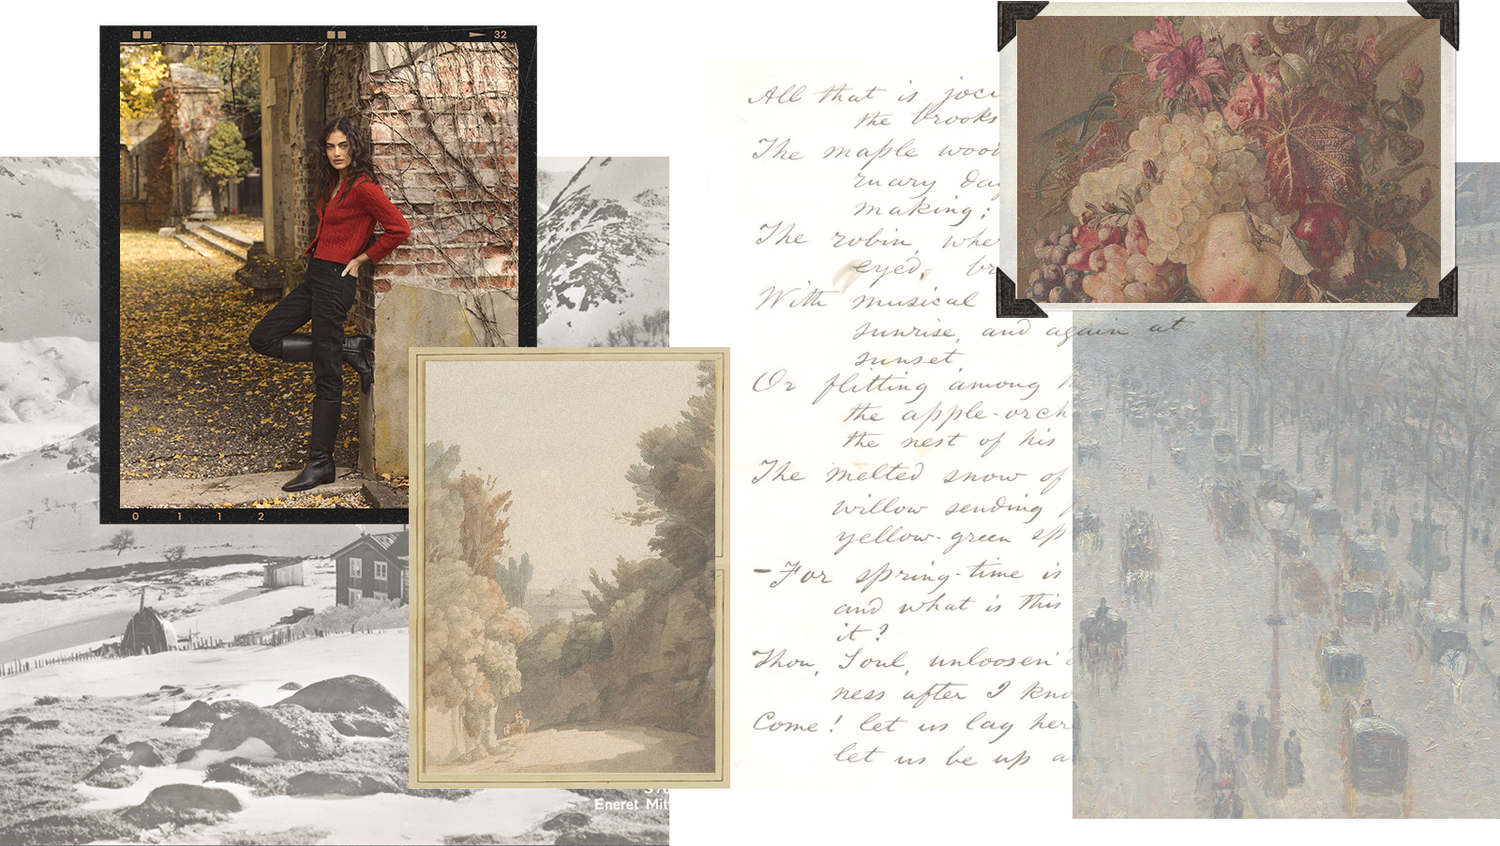 32
0 1 1 2
All that is
the brooks
The maple
making;
The robin,
eyed,
With musical
sunrise, and again at
sunset
Or flitting among
the
the nest of his
The melted snow of
willow sending
yellow-green
-For spring-time is
and what is this
it?
Thou, Soul, unloosen'd
ness after I
Come! let us lag
let us be up
Eneret